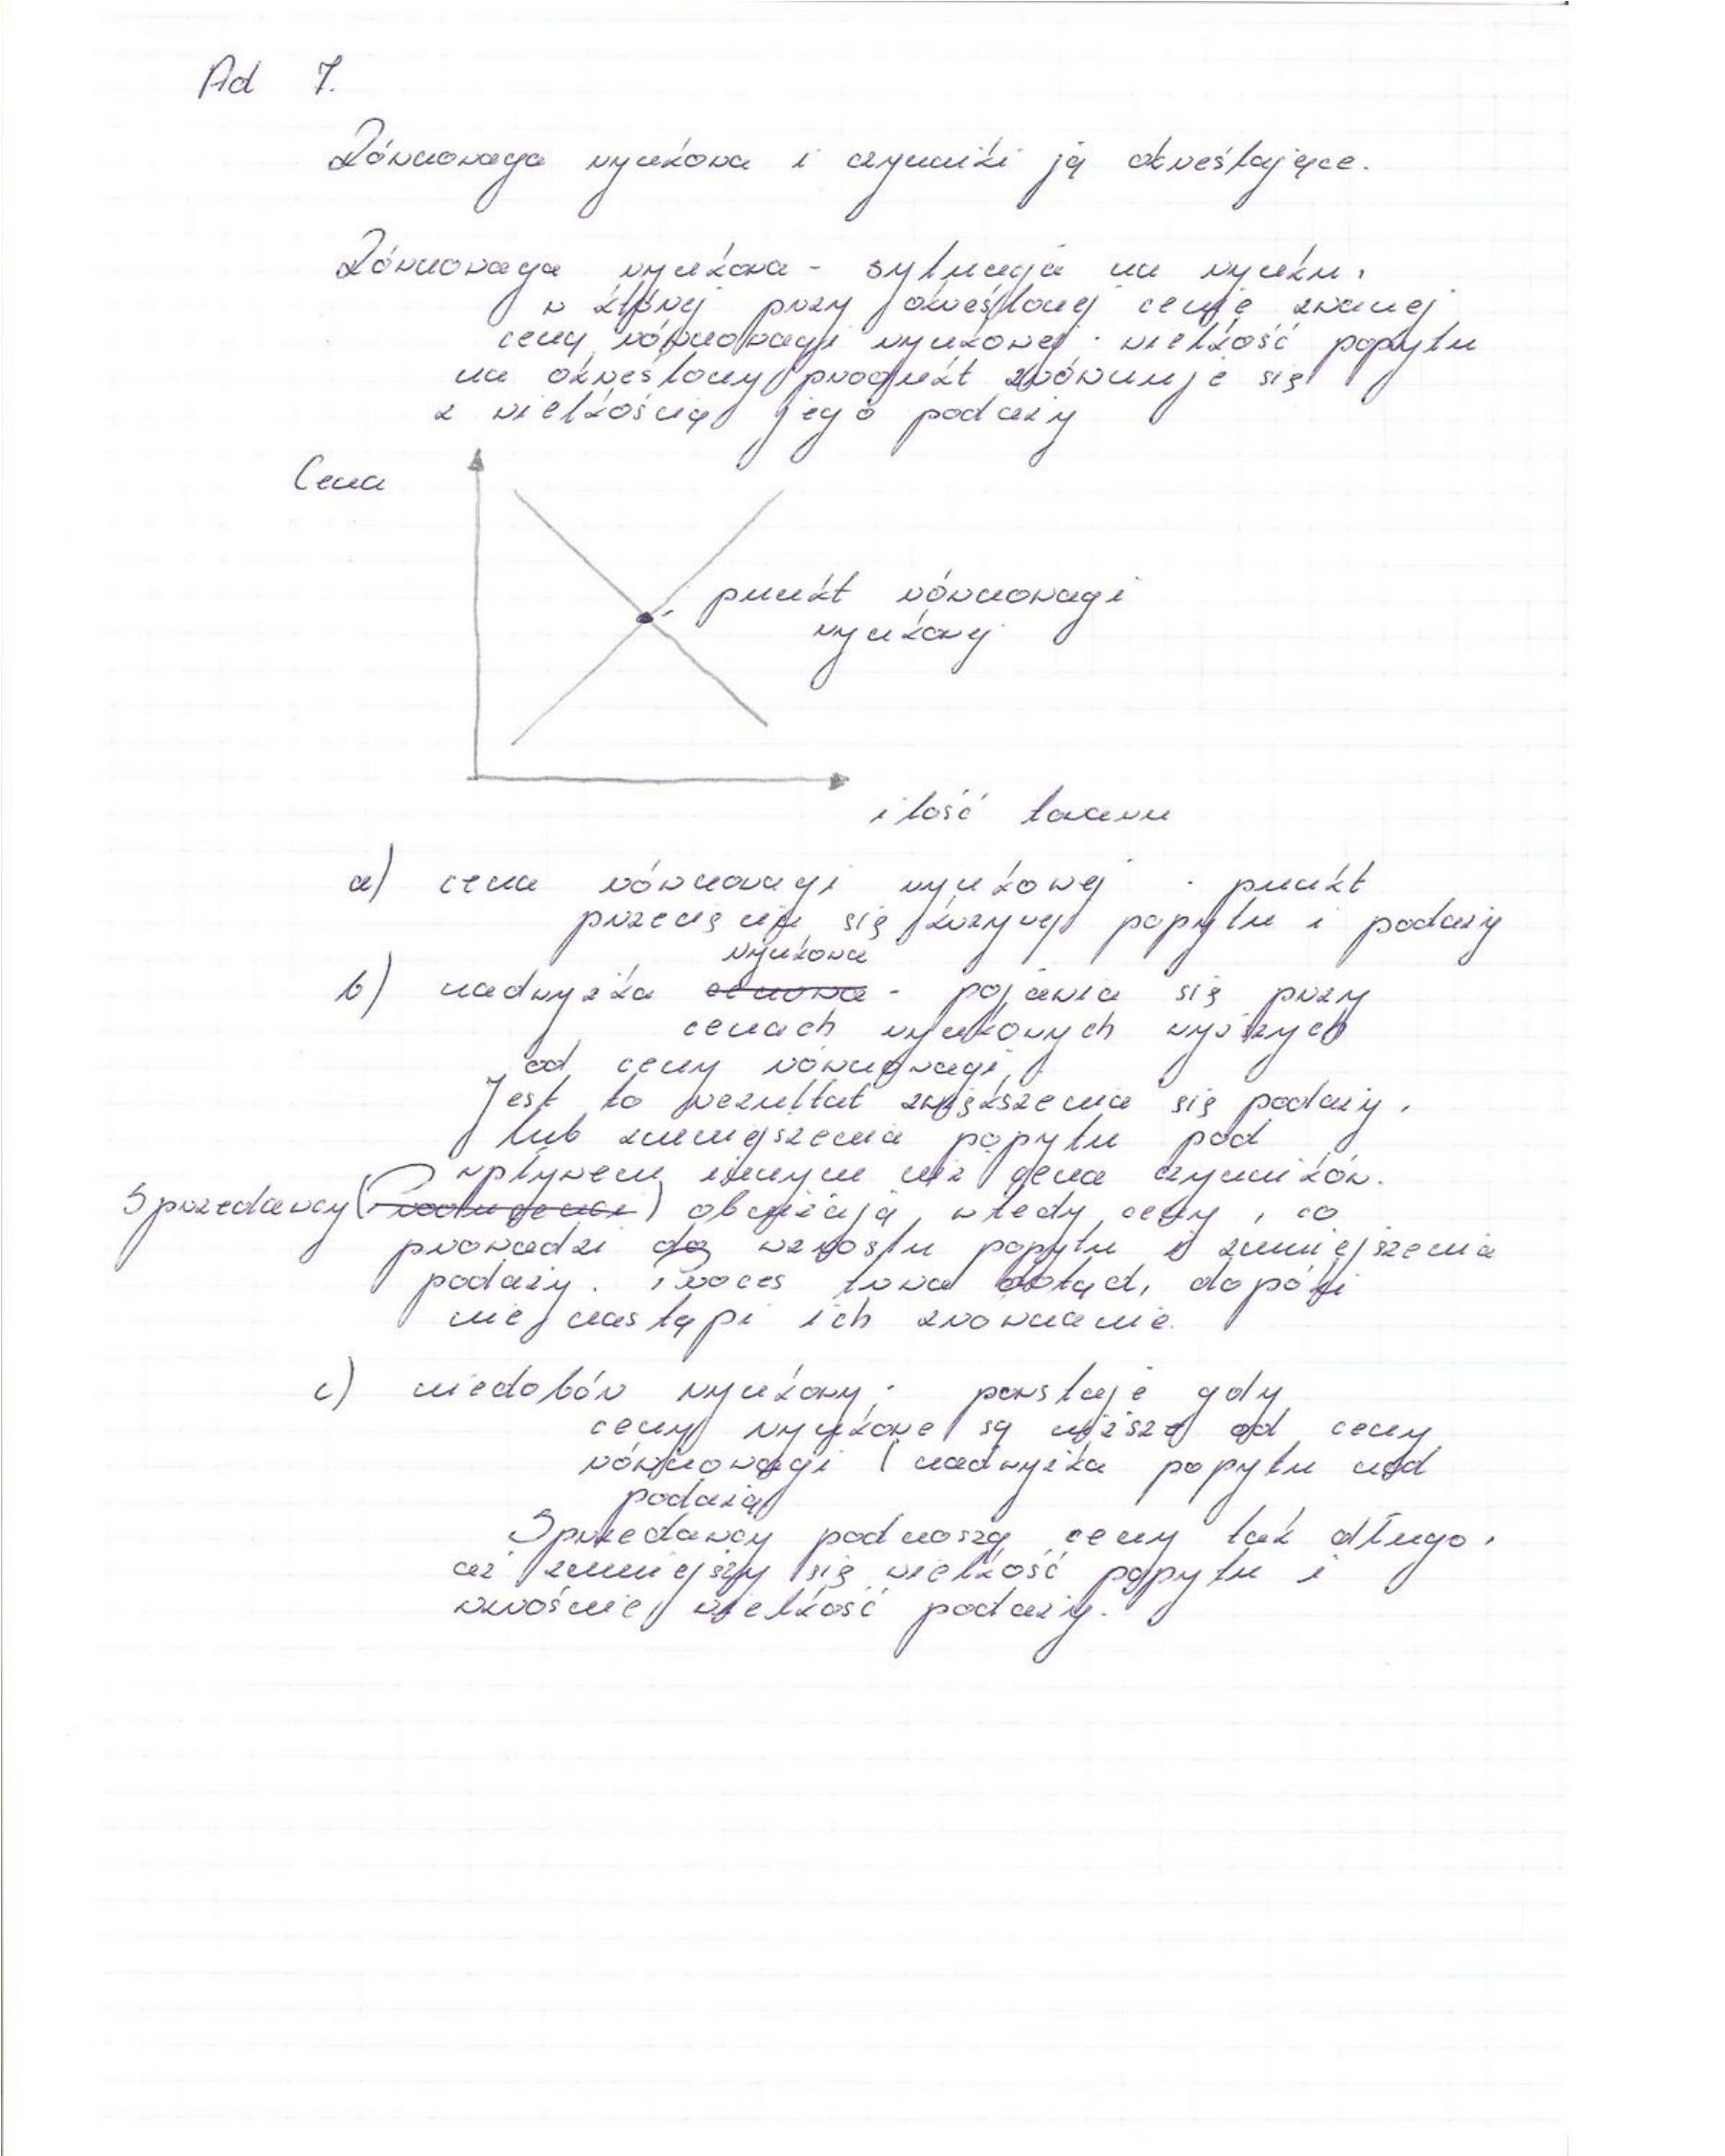 Ad 7.
Równowaga rynkowa i czynniki ją określające.
Równowaga rynkowa - sytuacja na rynku,
w której przy określonej cenie zwanej
ceną równowagi rynkowej - wielkość popytu
na określony produkt zrównuje się
z wielkością jego podaży
Cena
punkt równowagi
rynkowej
ilość towaru
a) cena równowagi rynkowej - punkt
przecięcia się krzywej popytu i podaży
rynkowa
b) nadwyżka cenowa - pojawia się przy
cenach rynkowych wyższych
od ceny równowagi.
Jest to rezultat zwiększenia się podaży,
lub zmniejszenia popytu pod
wpływem innym niż cena czynników.
Sprzedawcy (Producenci) obniżają wtedy ceny, co
prowadzi do wzrostu popytu i zmniejszenia
podaży. Proces trwa dotąd, dopóki
nie nastąpi ich zrównanie.
c) niedobór rynkowy - powstaje gdy
ceny rynkowe są niższe od ceny
równowagi (nadwyżka popytu nad
podażą
Sprzedawcy podnoszą ceny tak długo,
aż zmniejszy się wielkość popytu i
wzrośnie wielkość podaży.